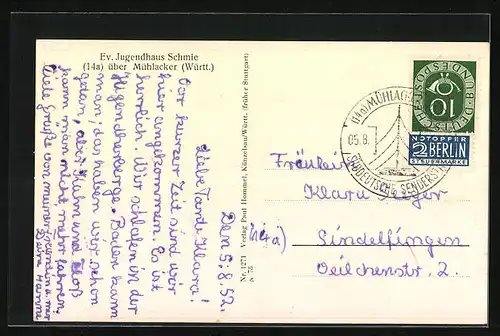 Ev. Jugendhaus Schmie
(14a) über Mühlacker (Württ.)
Den 5.8.52.
Liebe Tante Klara!
Vor kurzer Zeit sind wir
hier angekommen. Es ist
herrlich. Wir schlafen in der
Jugendherberge. Baden kann
man, das haben wir schon
getan, aber Kahn und Floß
kann man nicht mehr fahren.
Viele Grüße von meiner Freundin u. mir
Deine Hanne
Nr. 1271 Verlag Paul Hommel, Künzelsau/Württ. (früher Stuttgart)
S 75
DEUTSCHE BUNDESPOST
10
NOTOPFER
2 BERLIN
STEUERMARKE
(14a) MÜHLACKER
05.8.
SÜDDEUTSCHE SENDERS
Fräulein
Klara
(14a) Sindelfingen
Veilchenstr. 2.